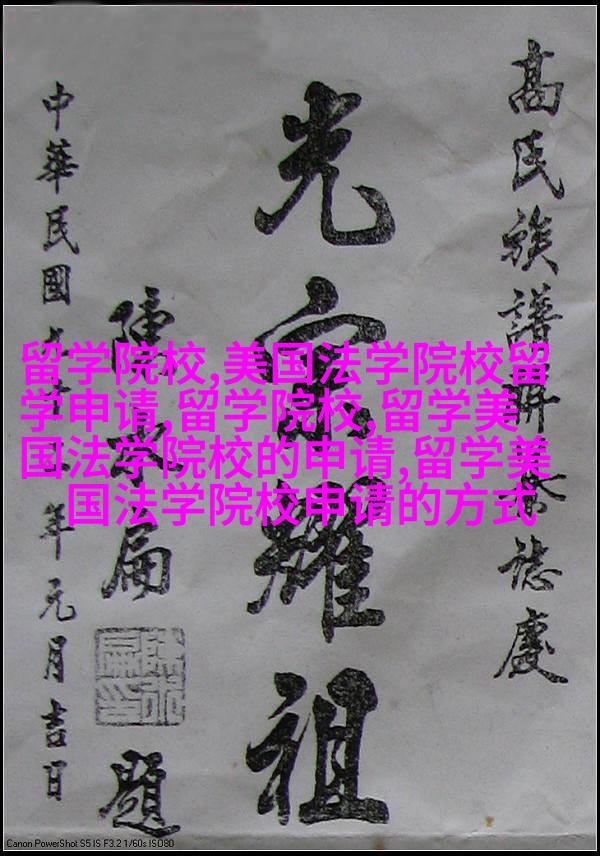 高氏族譜祭誌慶
光宗耀祖
陳水扁
題
中華民國年元月吉日
留学院校,美国法学院校留
学申请,留学院校,留学美
国法学院校的申请,留学美
国法学院校申请的方式
Canon PowerShot S5 IS F3.2 1/60s ISO80